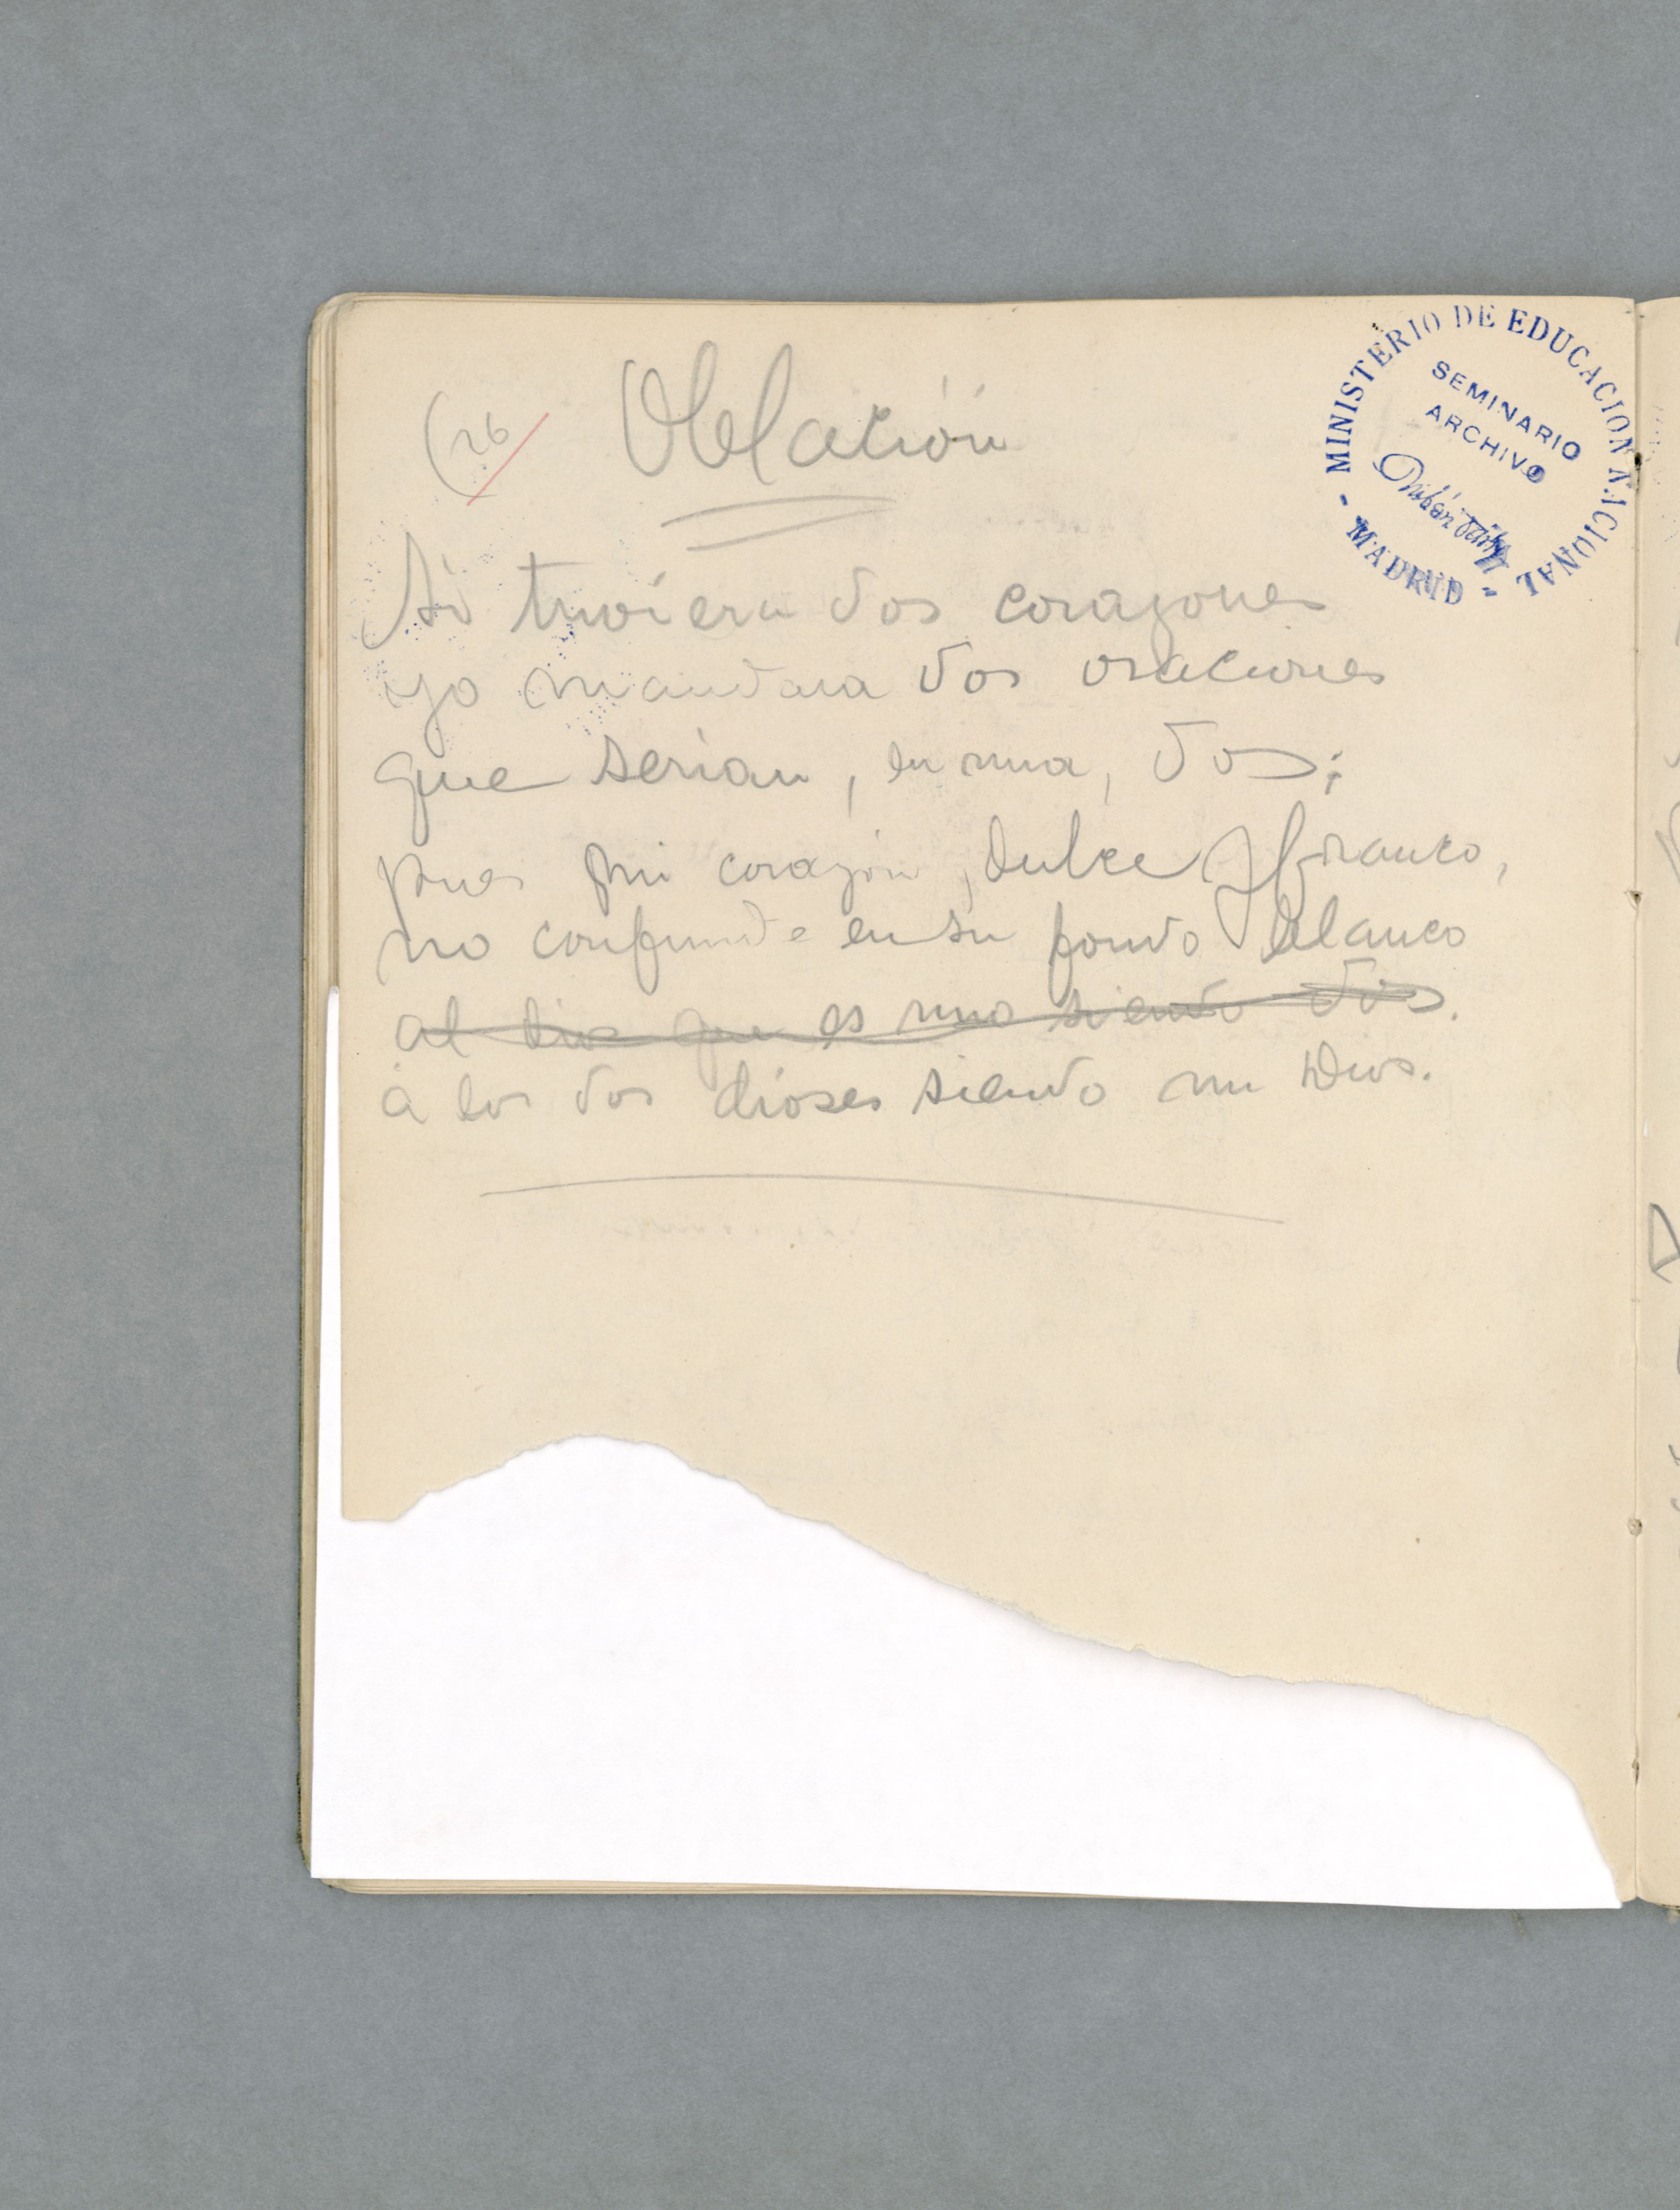 (26
Oblación
Si tuviera dos corazones
yo mandara dos oraciones
que serían, en una, dos;
pues mi corazón, dulce y franco,
no confunde en su fondo blanco
al dios que es uno siendo dos.
á los dos dioses siendo un Dios.
MINISTERIO DE EDUCACION NACIONAL
SEMINARIO
ARCHIVO
Rubén Darío
- MADRID -